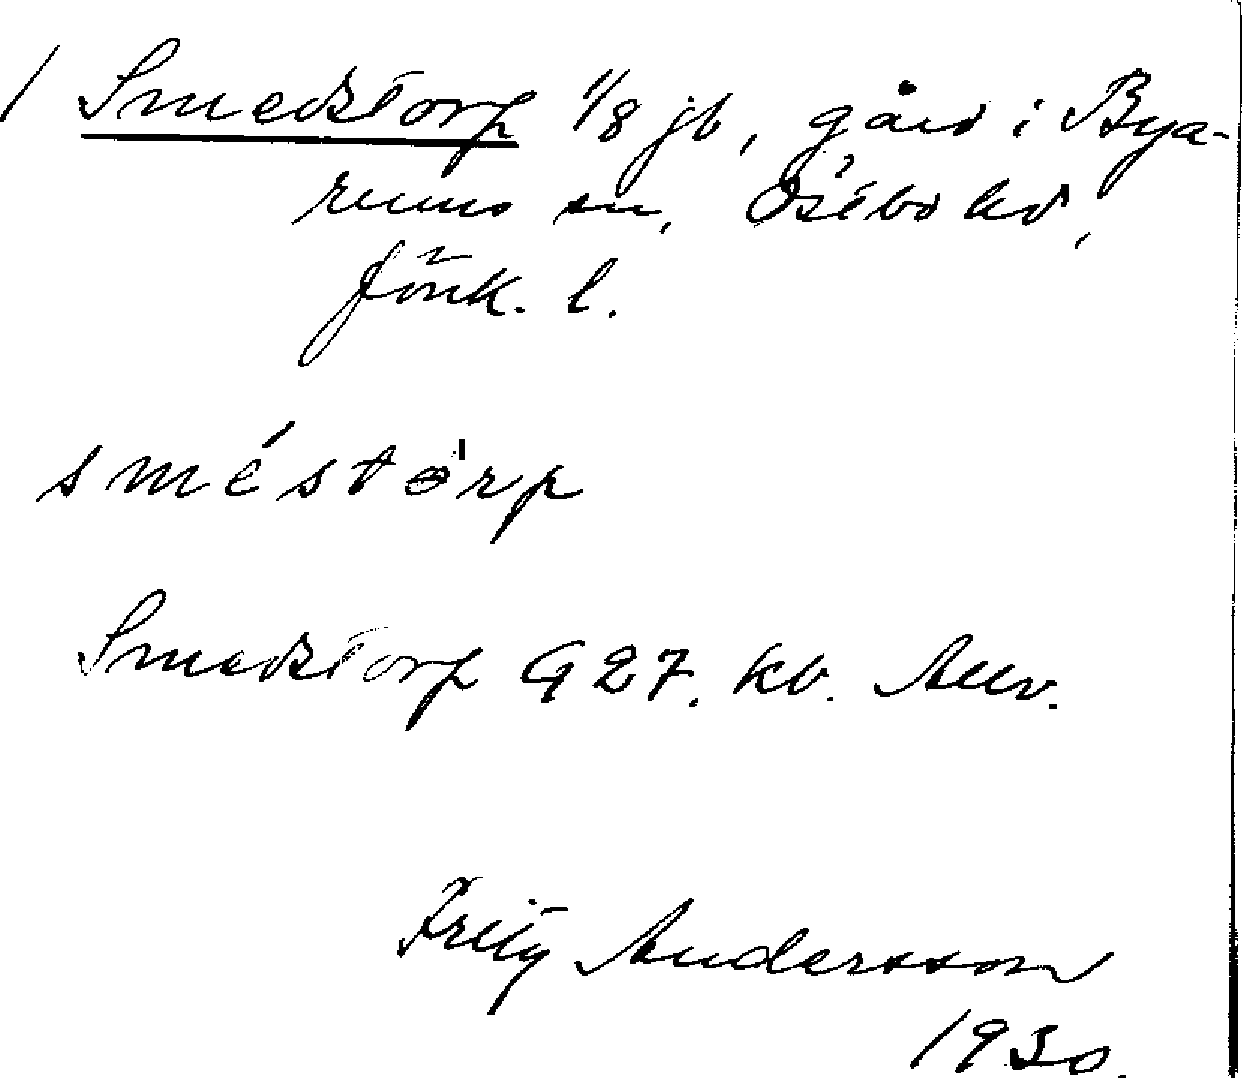 / Smedstorp 1/8 jb, gård i Bya-
rums sn, Östbo hd,
Jönk. l.
sméstòrp
Smedstorp 927. kb.
Fritz Andersson
1930.